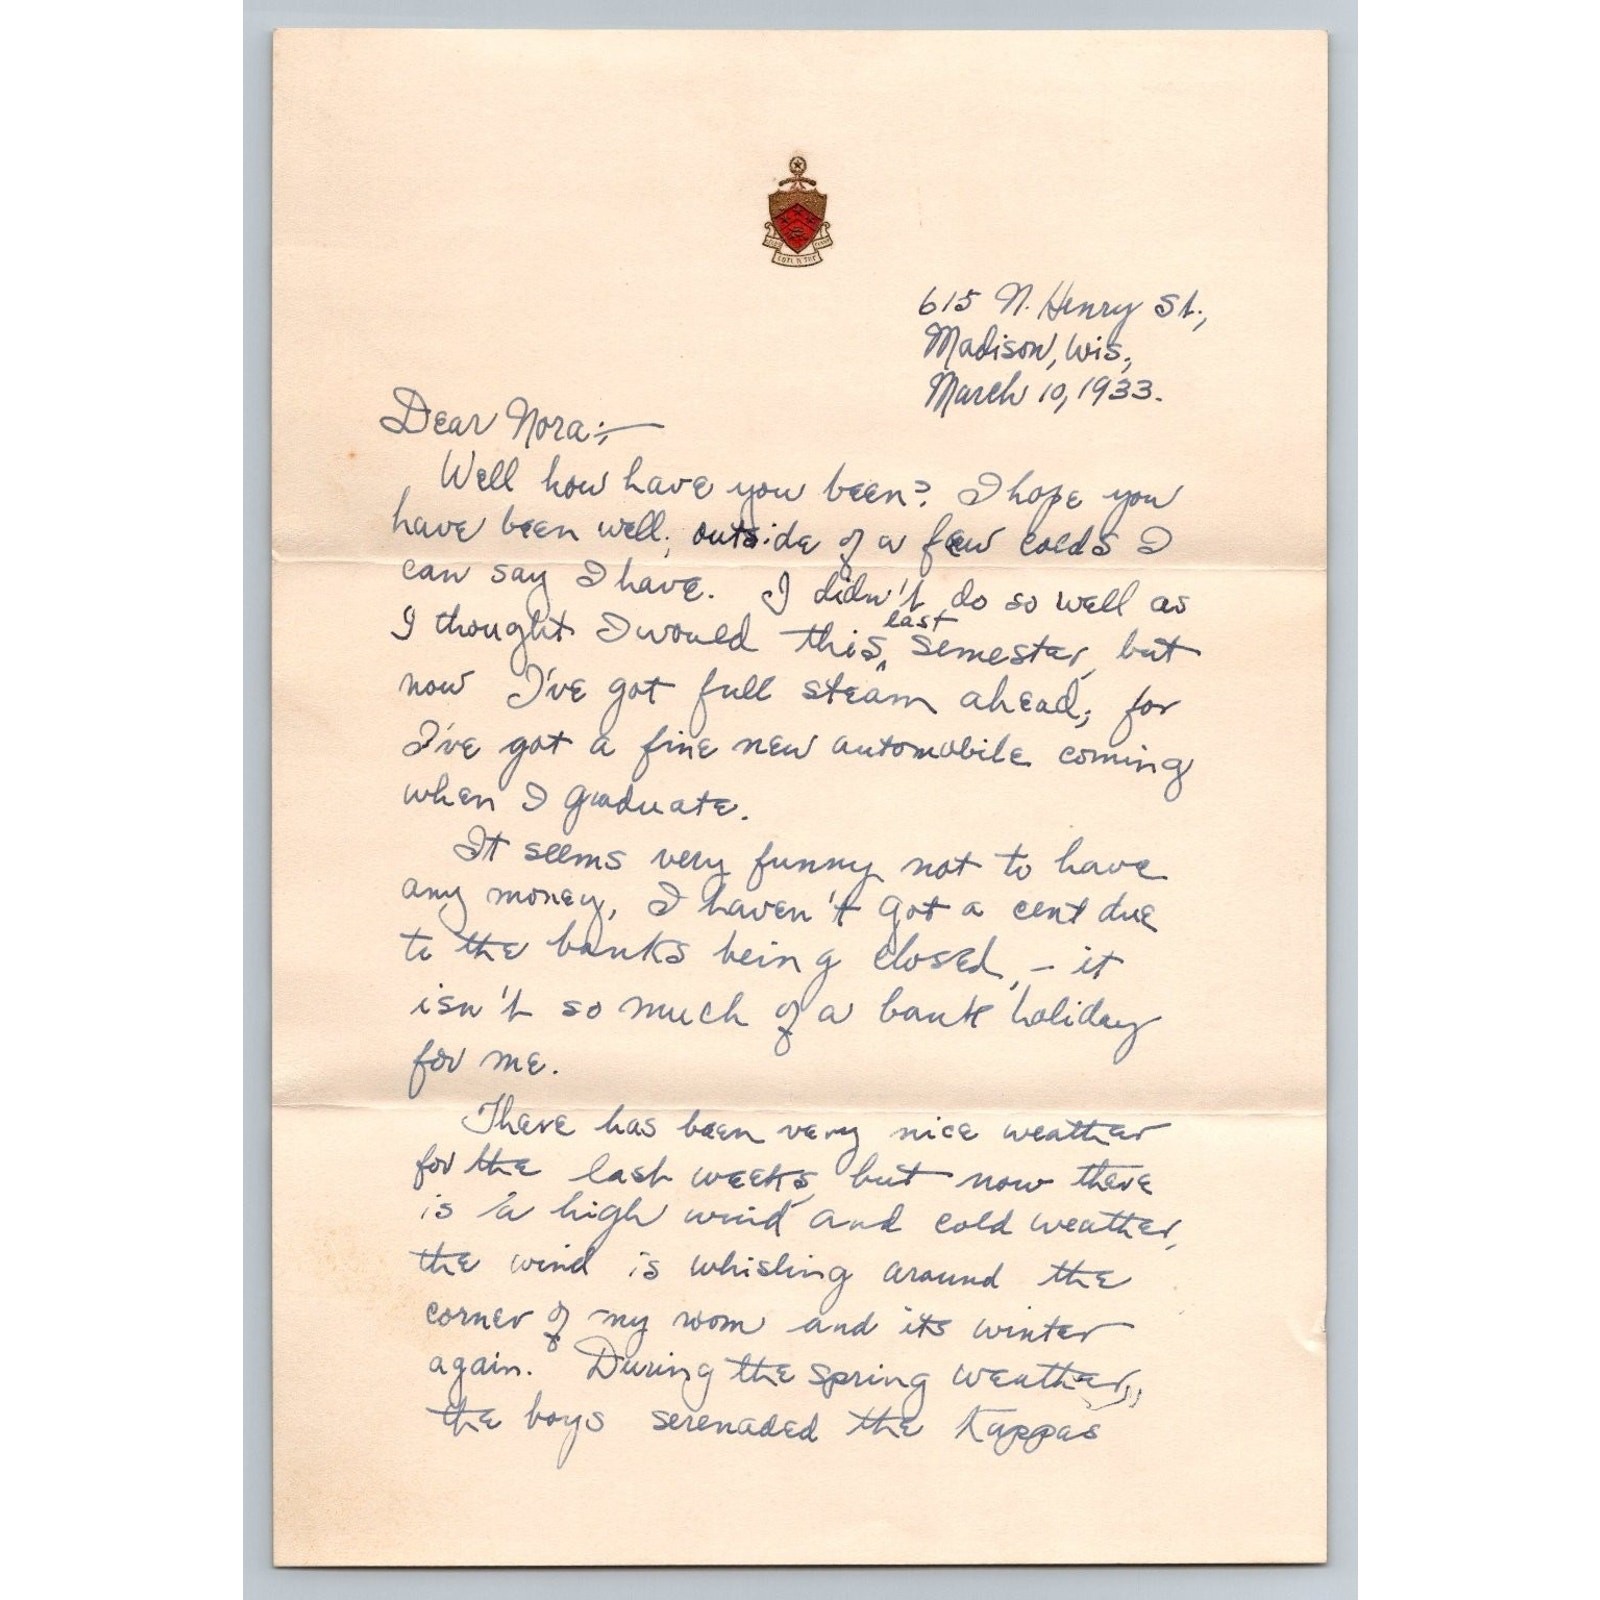 615 N. Henry St.,
Madison, Wis.,
March 10, 1933.
Dear Nora:—
Well how have you been? I hope you
have been well; outside of a few colds I
can say I have. I didn't do so well as
I thought I would this last semester, but
now I've got full steam ahead; for
I've got a fine new automobile coming
when I graduate.
It seems very funny not to have
any money, I haven't got a cent due
to the banks being closed, - it
isn't so much of a bank holiday
for me.
There has been very nice weather
for the last weeks, but now there
is a high wind and cold weather,
the wind is whisling around the
corner of my room and its winter
again. During the spring weather,
the boys serenaded the Kappas